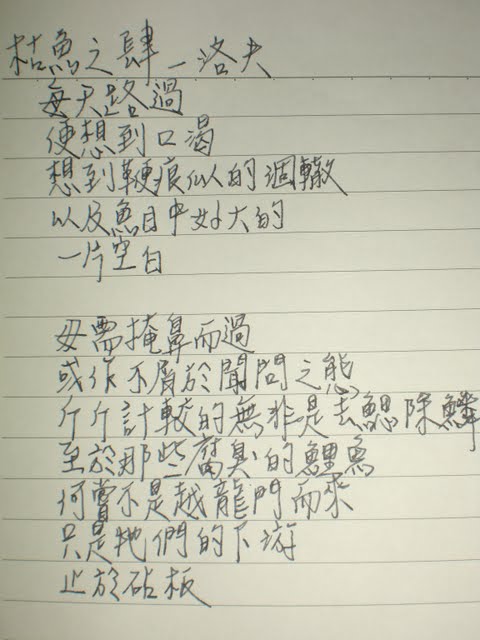 枯魚之肆_洛夫
每天路過
便想到口渴
想到鞭痕似的涸轍
以及魚目中好大的
一片空白
毋需掩鼻而過
或作不屑於聞問之態
斤斤計較的無非是去鰓除鱗
至於那些腐臭的鯉魚
何嘗不是越龍門而來
只是牠們的下游
止於砧板